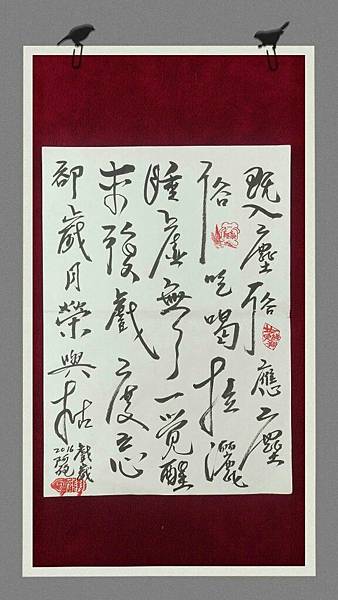 既入塵俗應塵
俗吃喝拉灑
睡虛無一覺醒
來發戲度忘
卻歲月榮與枯
2016